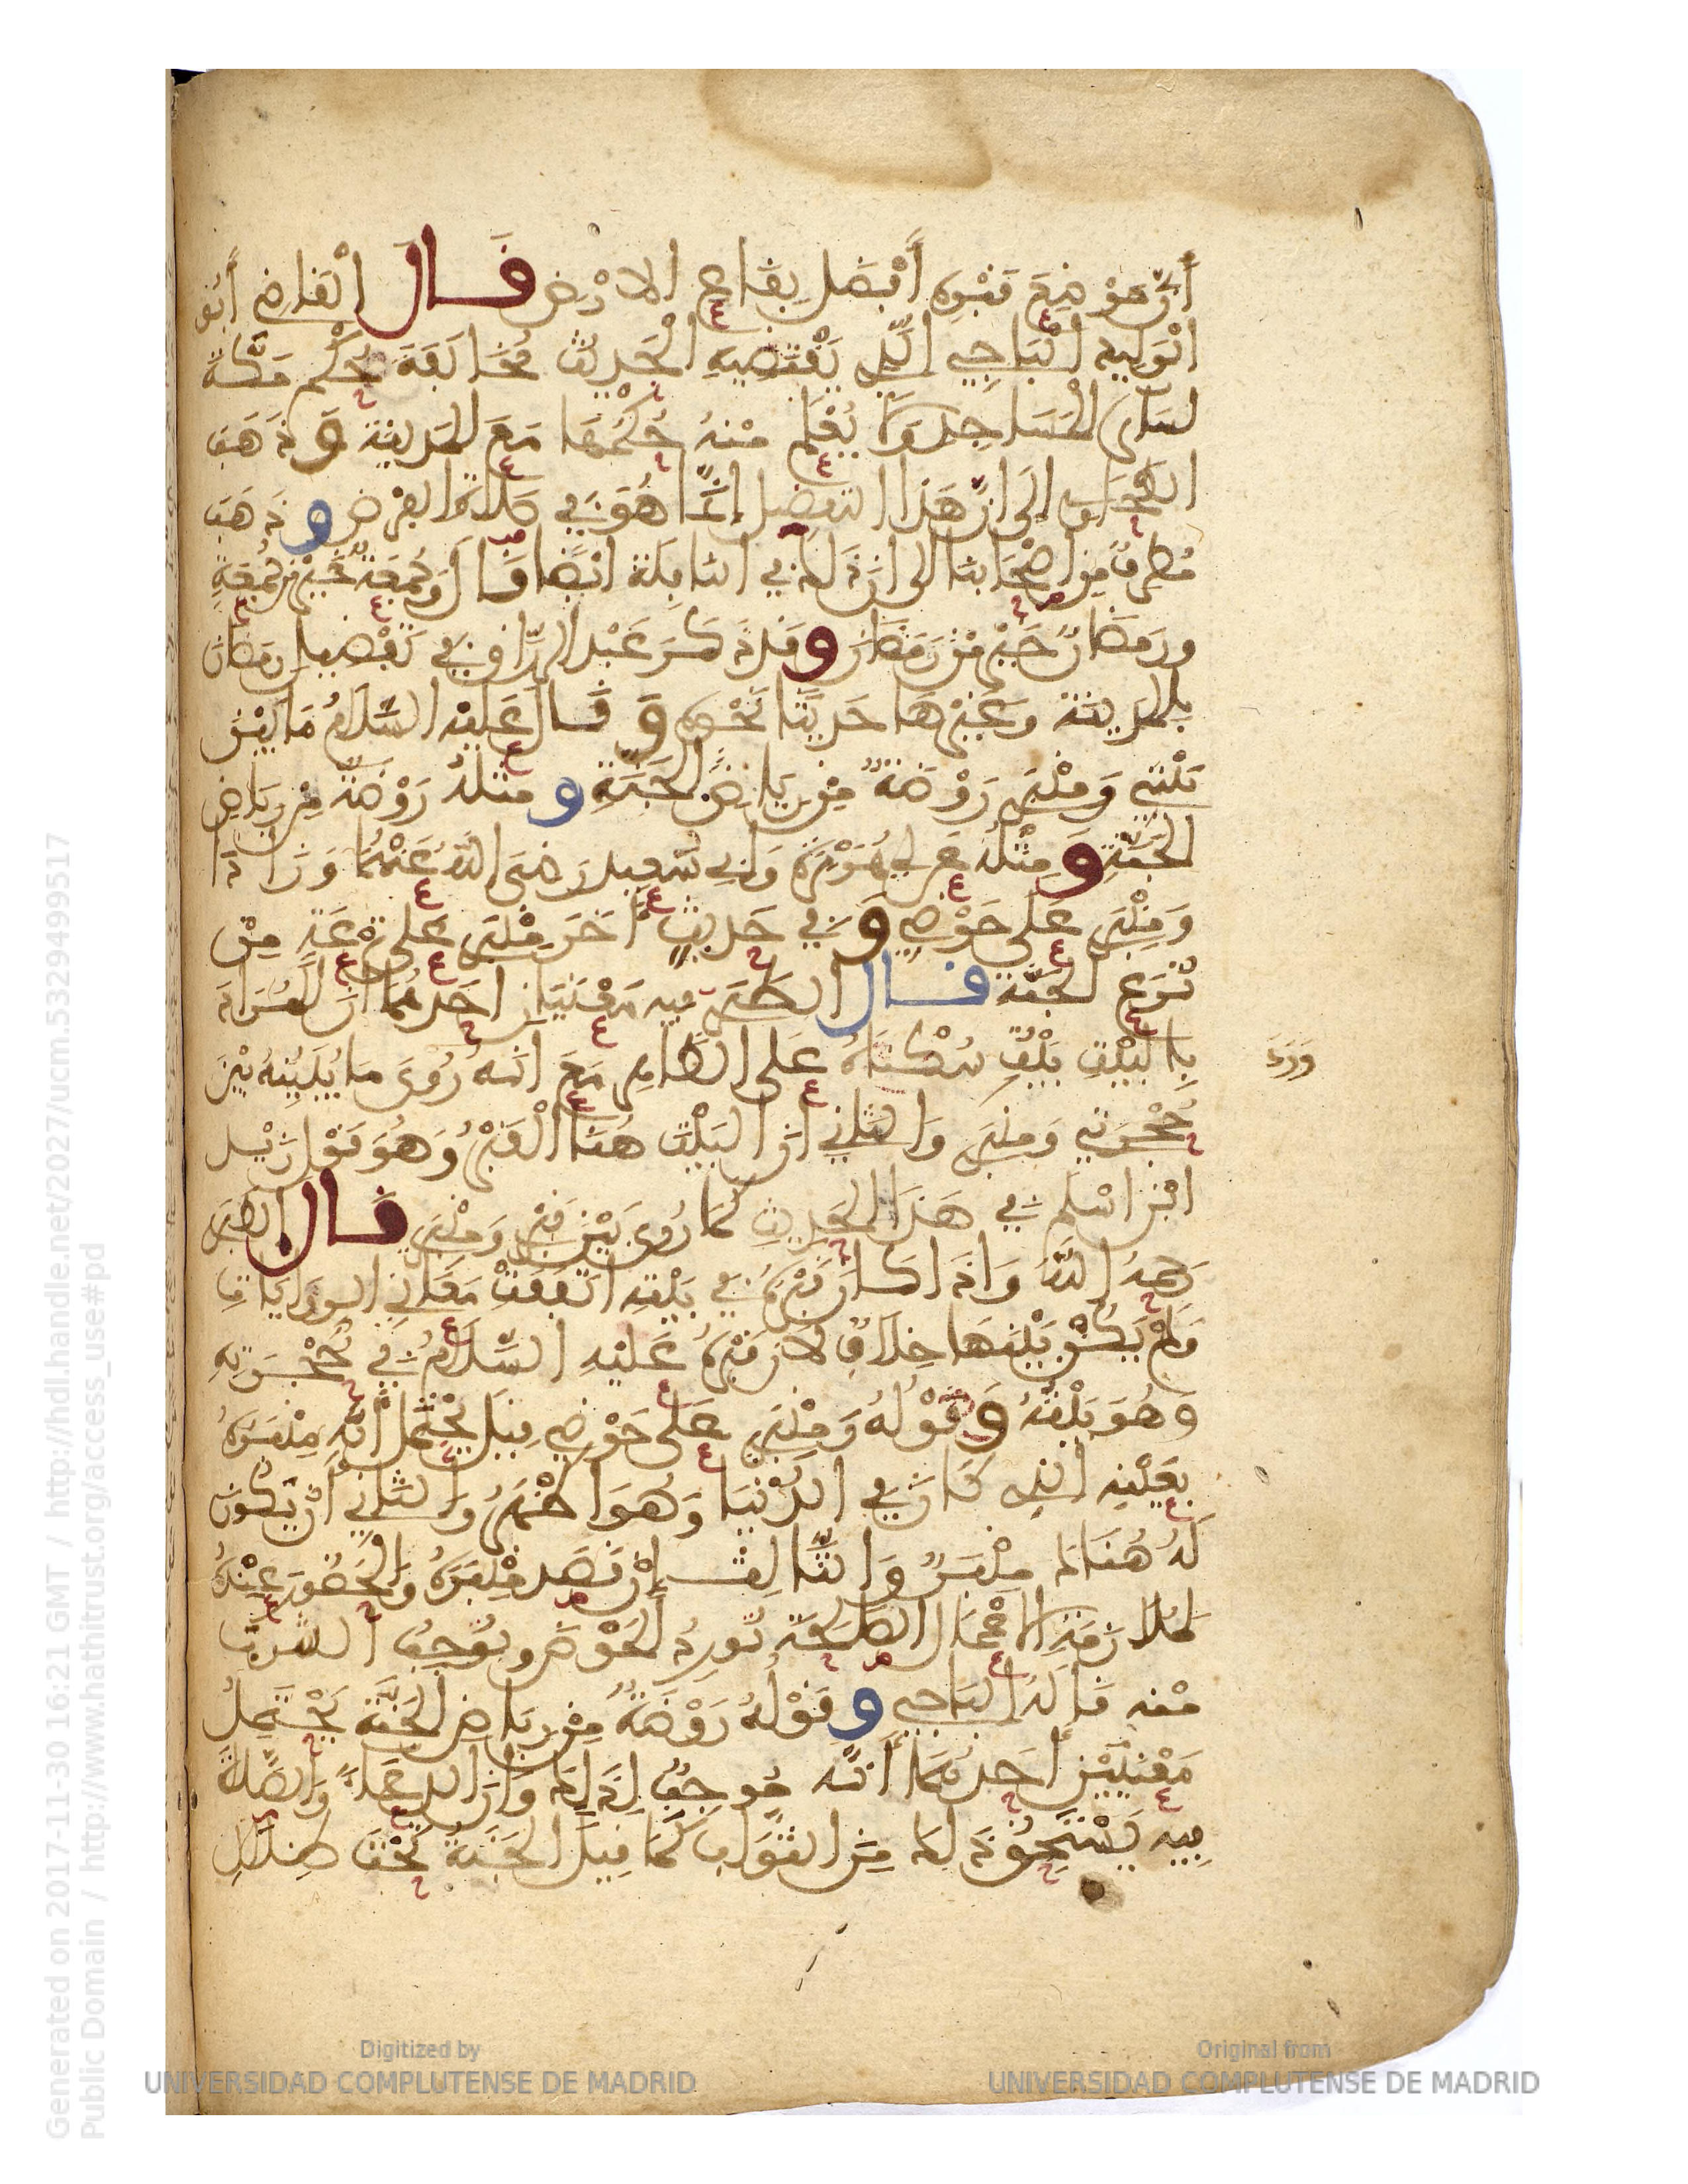 أنّ موضع قبره أفضل بقاع الارض قال القاضي أبو
الوليد الباجي الذي يقتضيه الحديث مخالفة حكم مكة
لسائر المساجد ولا يعلم منه حكمها مع المدينة وذهب
الطحاوي الى ان هذا التفضيل إنما هو في صلاة الفرض وذهب
مطرف من اصحابنا الى ان ذلك في النافلة ايضا قال وجمعة خير من جمعة
ورمضان خير من رمضان وقد ذكر عبد الرزاق في تفضيل رمضان
بالمدينة وغيرها حديثا نحوه وقال عليه السلام ما بين
بيتي ومنبري روضة من رياض الجنة ومثله روضة من رياض
الجنة ومثله عن ابي هريرة وابي سعيد رضى الله عنهما وزاد
ومنبري على حوضي وفي حديث اخر منبري على ترعة من
ترع الجنة قال الطبري فيه معنيان احدهما ان المراد
بالبيت بيت سكناه على الظاهر مع انه روي ما يبينه بين
ورد
حجرتي ومنبري والثاني ان البيت هنا القبر وهو قول زيد
ابن اسلم في هذا الحديث كما روي بين قبري ومنبري قال الطبري
رحمه الله واذا كان قبره في بيته اتفقت معاني الروايات
ولم يكن بينها خلاف لان قبره عليه السلام في حجرته
وهو بيته وقوله ومنبري على حوضي قيل يحتمل انه منبره
بعينه الذي كان في الدنيا وهو اظهر والثاني أن يكون
له هناك منبر والثالث إن قصد منبره والحضور عنده
لملازمة الاعمال الصالحة يورد الحوض ويوجب الشرب
منه قاله الباجي وقوله روضة من رياض الجنة يحتمل
معنيين أحدهما أنه موجب لذلك وان الدعاء والصلاة
فيه يستحق ذلك من الثواب كما قيل الجنة تحت ظلال
Generated on 2017-11-30 16:21 GMT / http://hdl.handle.net/2027/ucm.5329499517
Public Domain / http://www.hathitrust.org/access_use#pd
Digitized by
UNIVERSIDAD COMPLUTENSE DE MADRID
Original from
UNIVERSIDAD COMPLUTENSE DE MADRID